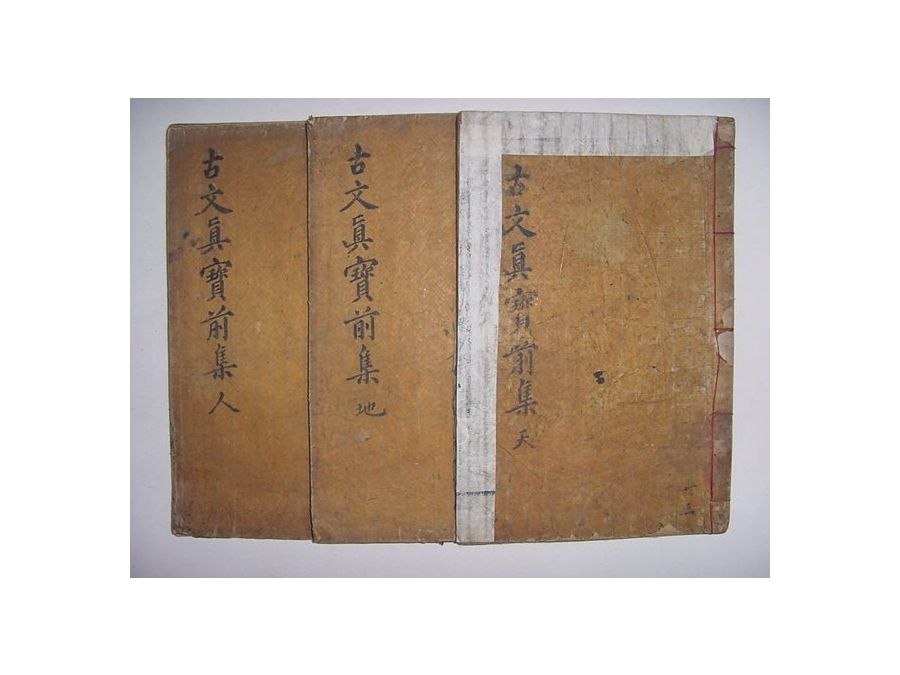 古文眞寶前集 天
共三
古文眞寶前集 地
古文眞寶前集 人